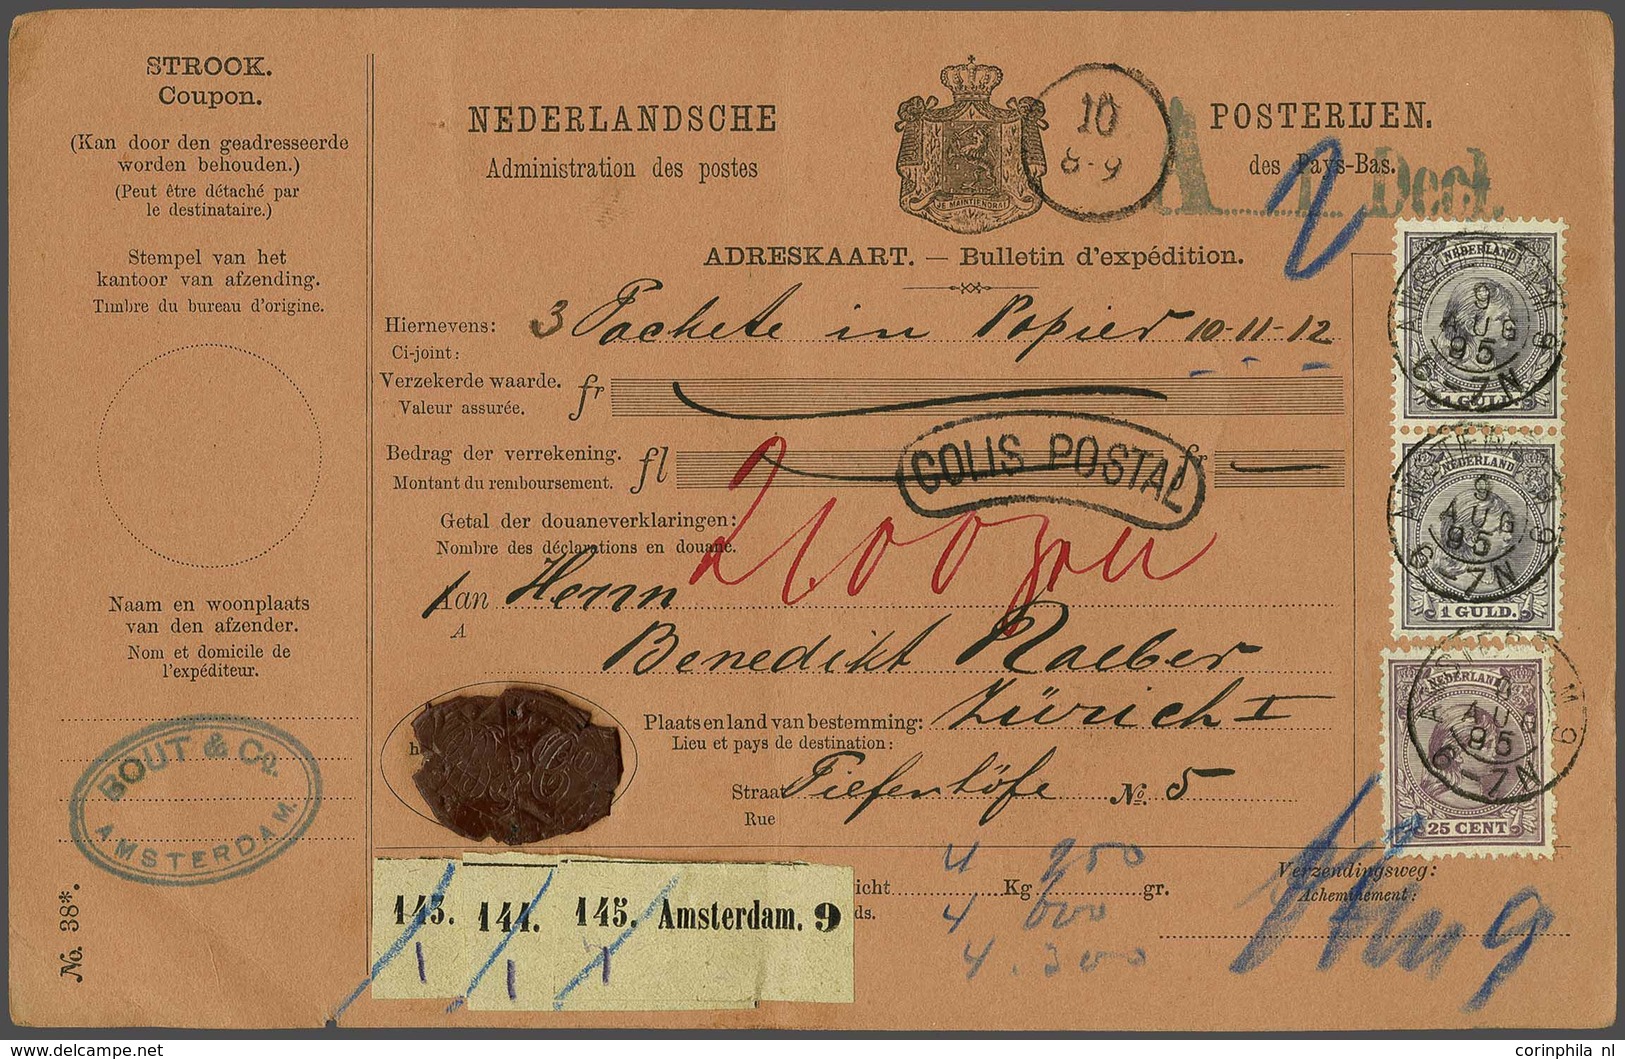 STROOK.
Coupon.
(Kan door den geadresseerde
worden behouden.)
(Peut être détaché par
le destinataire.)
Stempel van het
kantoor van afzending.
Timbre du bureau d'origine.
Naam en woonplaats
van den afzender.
Nom et domicile de
l'expéditeur.
BOUT & Co.
AMSTERDAM
No. 38*.
NEDERLANDSCHE POSTERIJEN.
Administration des postes des Pays-Bas.
JE MAINTIENDRAI
10
8-9
A 1 Decl.
2
ADRESKAART. — Bulletin d'expédition.
Hiernevens: 3 Packete in Papier 10-11-12
Ci-joint:
Verzekerde waarde. fr
Valeur assurée.
Bedrag der verrekening. fl fr
Montant du remboursement.
COLIS POSTAL
Getal der douaneverklaringen:
Nombre des déclarations en douane.
Aan Herrn
A
Benedikt Raeber
Plaats en land van bestemming: Zürich I
Lieu et pays de destination:
Straat Tiefenhöfe No. 5
Rue
NEDERLAND
1 GULD.
AMSTERDAM 9
9
AUG
95
6-7N
NEDERLAND
1 GULD.
AMSTERDAM 9
9
AUG
95
6-7N
NEDERLAND
25 CENT
AUG
95
6-7N
143. 144. 145. Amsterdam. 9
1 1 1
icht Kg gr.
ds.
4 950
4 000
4.300
Verzendingsweg:
Acheminement:
9
corinphila nl